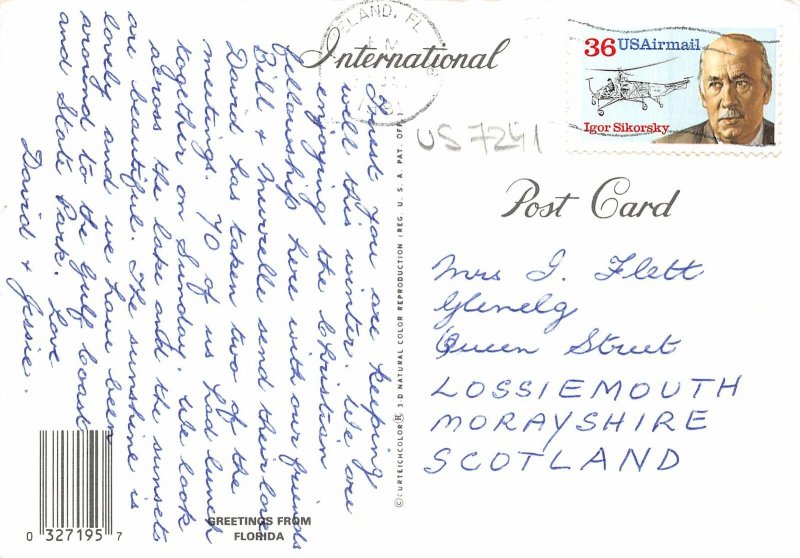 International
Post Card
36 USAirmail
Igor Sikorsky
LAND, FL
US7241
Trust you are keeping
well this winter. We are
enjoying the Christian
fellowship here with our friends
Bill & Murrelle send their love
David has taken two of the
meetings. 70 of us had lunch
together on Sunday. We look
across the lake and the sunsets
are beautiful. The sunshine is
lovely and we have been
around to the Gulf Coast
and State Park. Love
David & Jessie.
Mrs J. Flett
Glenelg
Queen Street
LOSSIEMOUTH
MORAYSHIRE
SCOTLAND
©CURTEICHCOLOR® 3-D NATURAL COLOR REPRODUCTION (REG. U.S.A. PAT. OFF.)
GREETINGS FROM
FLORIDA
0 327195 7